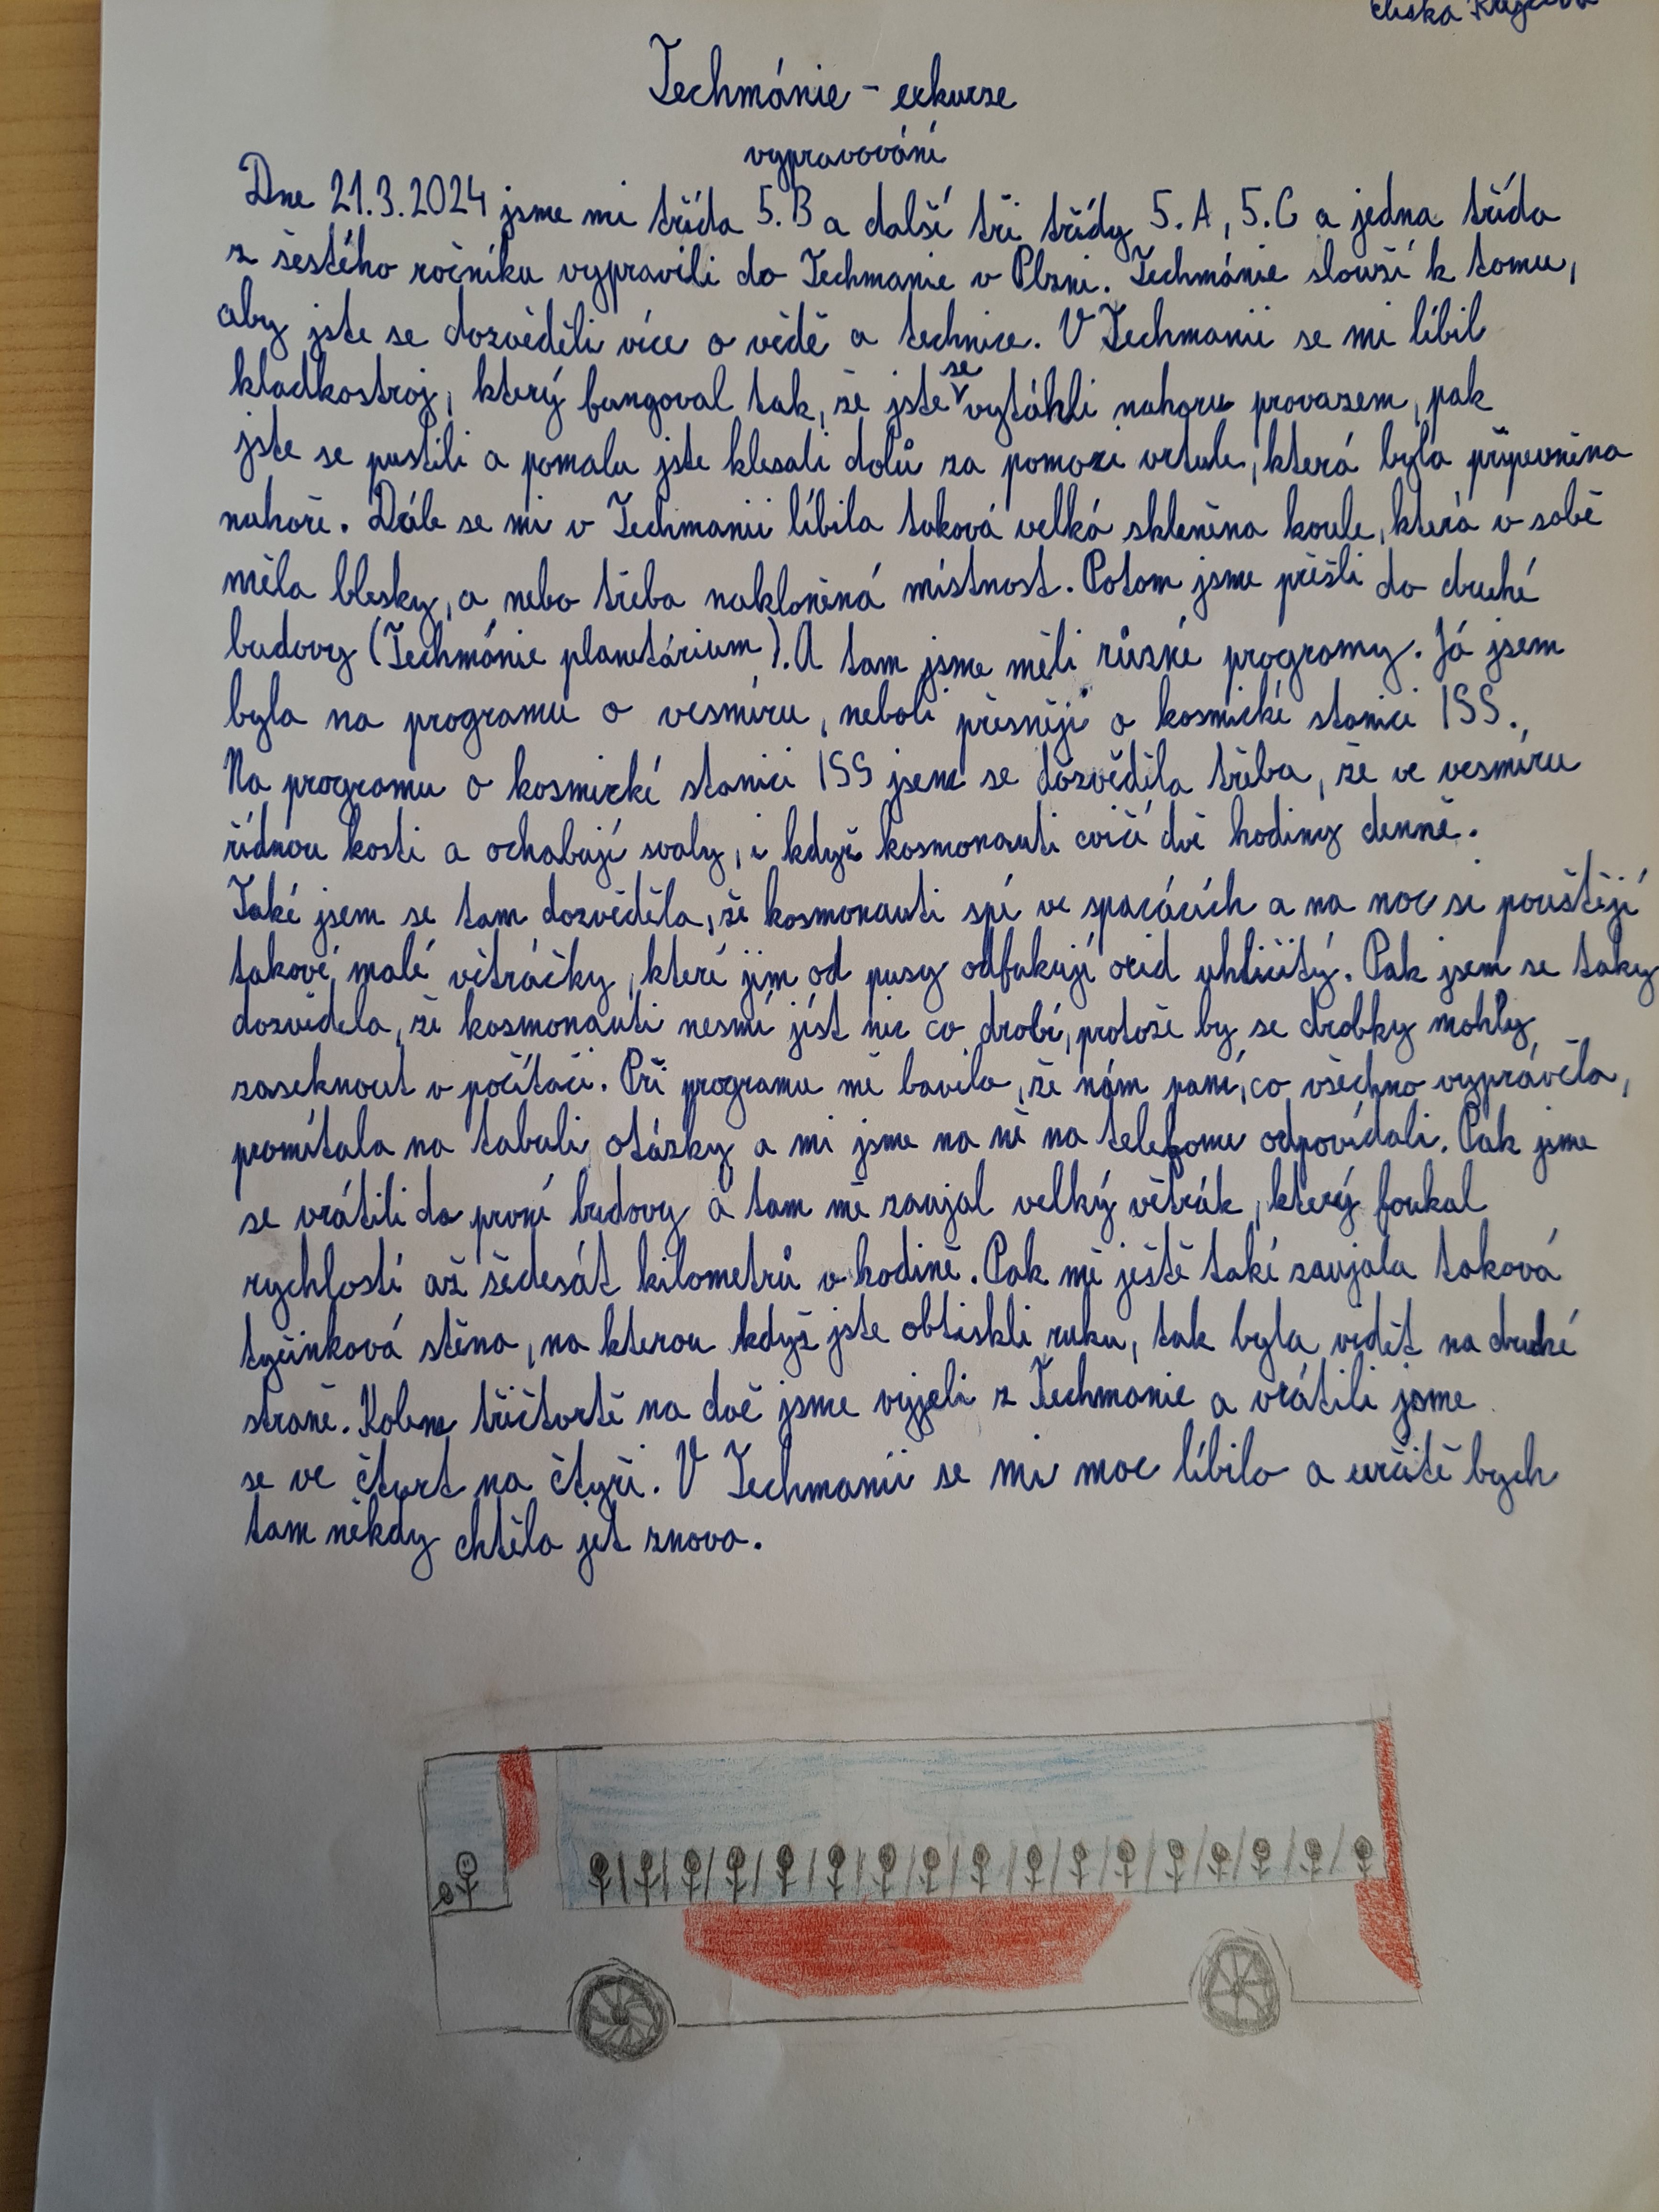 Techmánie - exkurze
vypravování
Dne 21.3.2024 jsme mi třída 5.B a další tři třídy 5.A, 5.C a jedna třída
z šestého ročníku vypravili do Techmanie v Plzni. Techmánie slouží k tomu,
aby jste se dozvěděli více o vědě a technice. V Techmanii se mi líbil
kladkostroj, který fungoval tak, že jste se vytáhli nahoru provazem, pak
jste se pustili a pomalu jste klesali dolů za pomoci vrtule, která byla připevněna
nahoře. Dále se mi v Techmanii líbila taková velká skleněna koule, která v sobě
měla blesky, a nebo třeba nakloněná místnost. Potom jsme přešli do druhé
budovy (Techmánie planetárium). A tam jsme měli různé programy. Já jsem
byla na programu o vesmíru, neboli přesněji o kosmické stanici ISS.
Na programu o kosmické stanici ISS jsem se dozvěděla třeba, že ve vesmíru
řídnou kosti a ochabují svaly, i když kosmonauti cvičí dvě hodiny denně.
Také jsem se tam dozvěděla, že kosmonauti spí ve spacácích a na noc si pouštějí
takové malé větráčky, které jim od pusy odfukují oxid uhličitý. Pak jsem se taky
dozvěděla, že kosmonauti nesmí jíst nic co drobí, protože by se drobky mohly
zaseknout v počítači. Při programu mě bavilo, že nám paní, co všechno vyprávěla,
promítala na tabuli otázky a mi jsme na ně na telefonu odpovídali. Pak jsme
se vrátili do první budovy a tam mě zaujal velký větrák, který foukal
rychlostí až šedesát kilometrů v hodině. Pak mě ještě také zaujala taková
tyčinková stěna, na kterou když jste obtiskli ruku, tak byla vidět na druhé
straně. Kolem třičtvrtě na dvě jsme vyjeli z Techmanie a vrátili jsme
se ve čtvrt na čtyři. V Techmanii se mi moc líbilo a určitě bych
tam někdy chtěla jet znova.